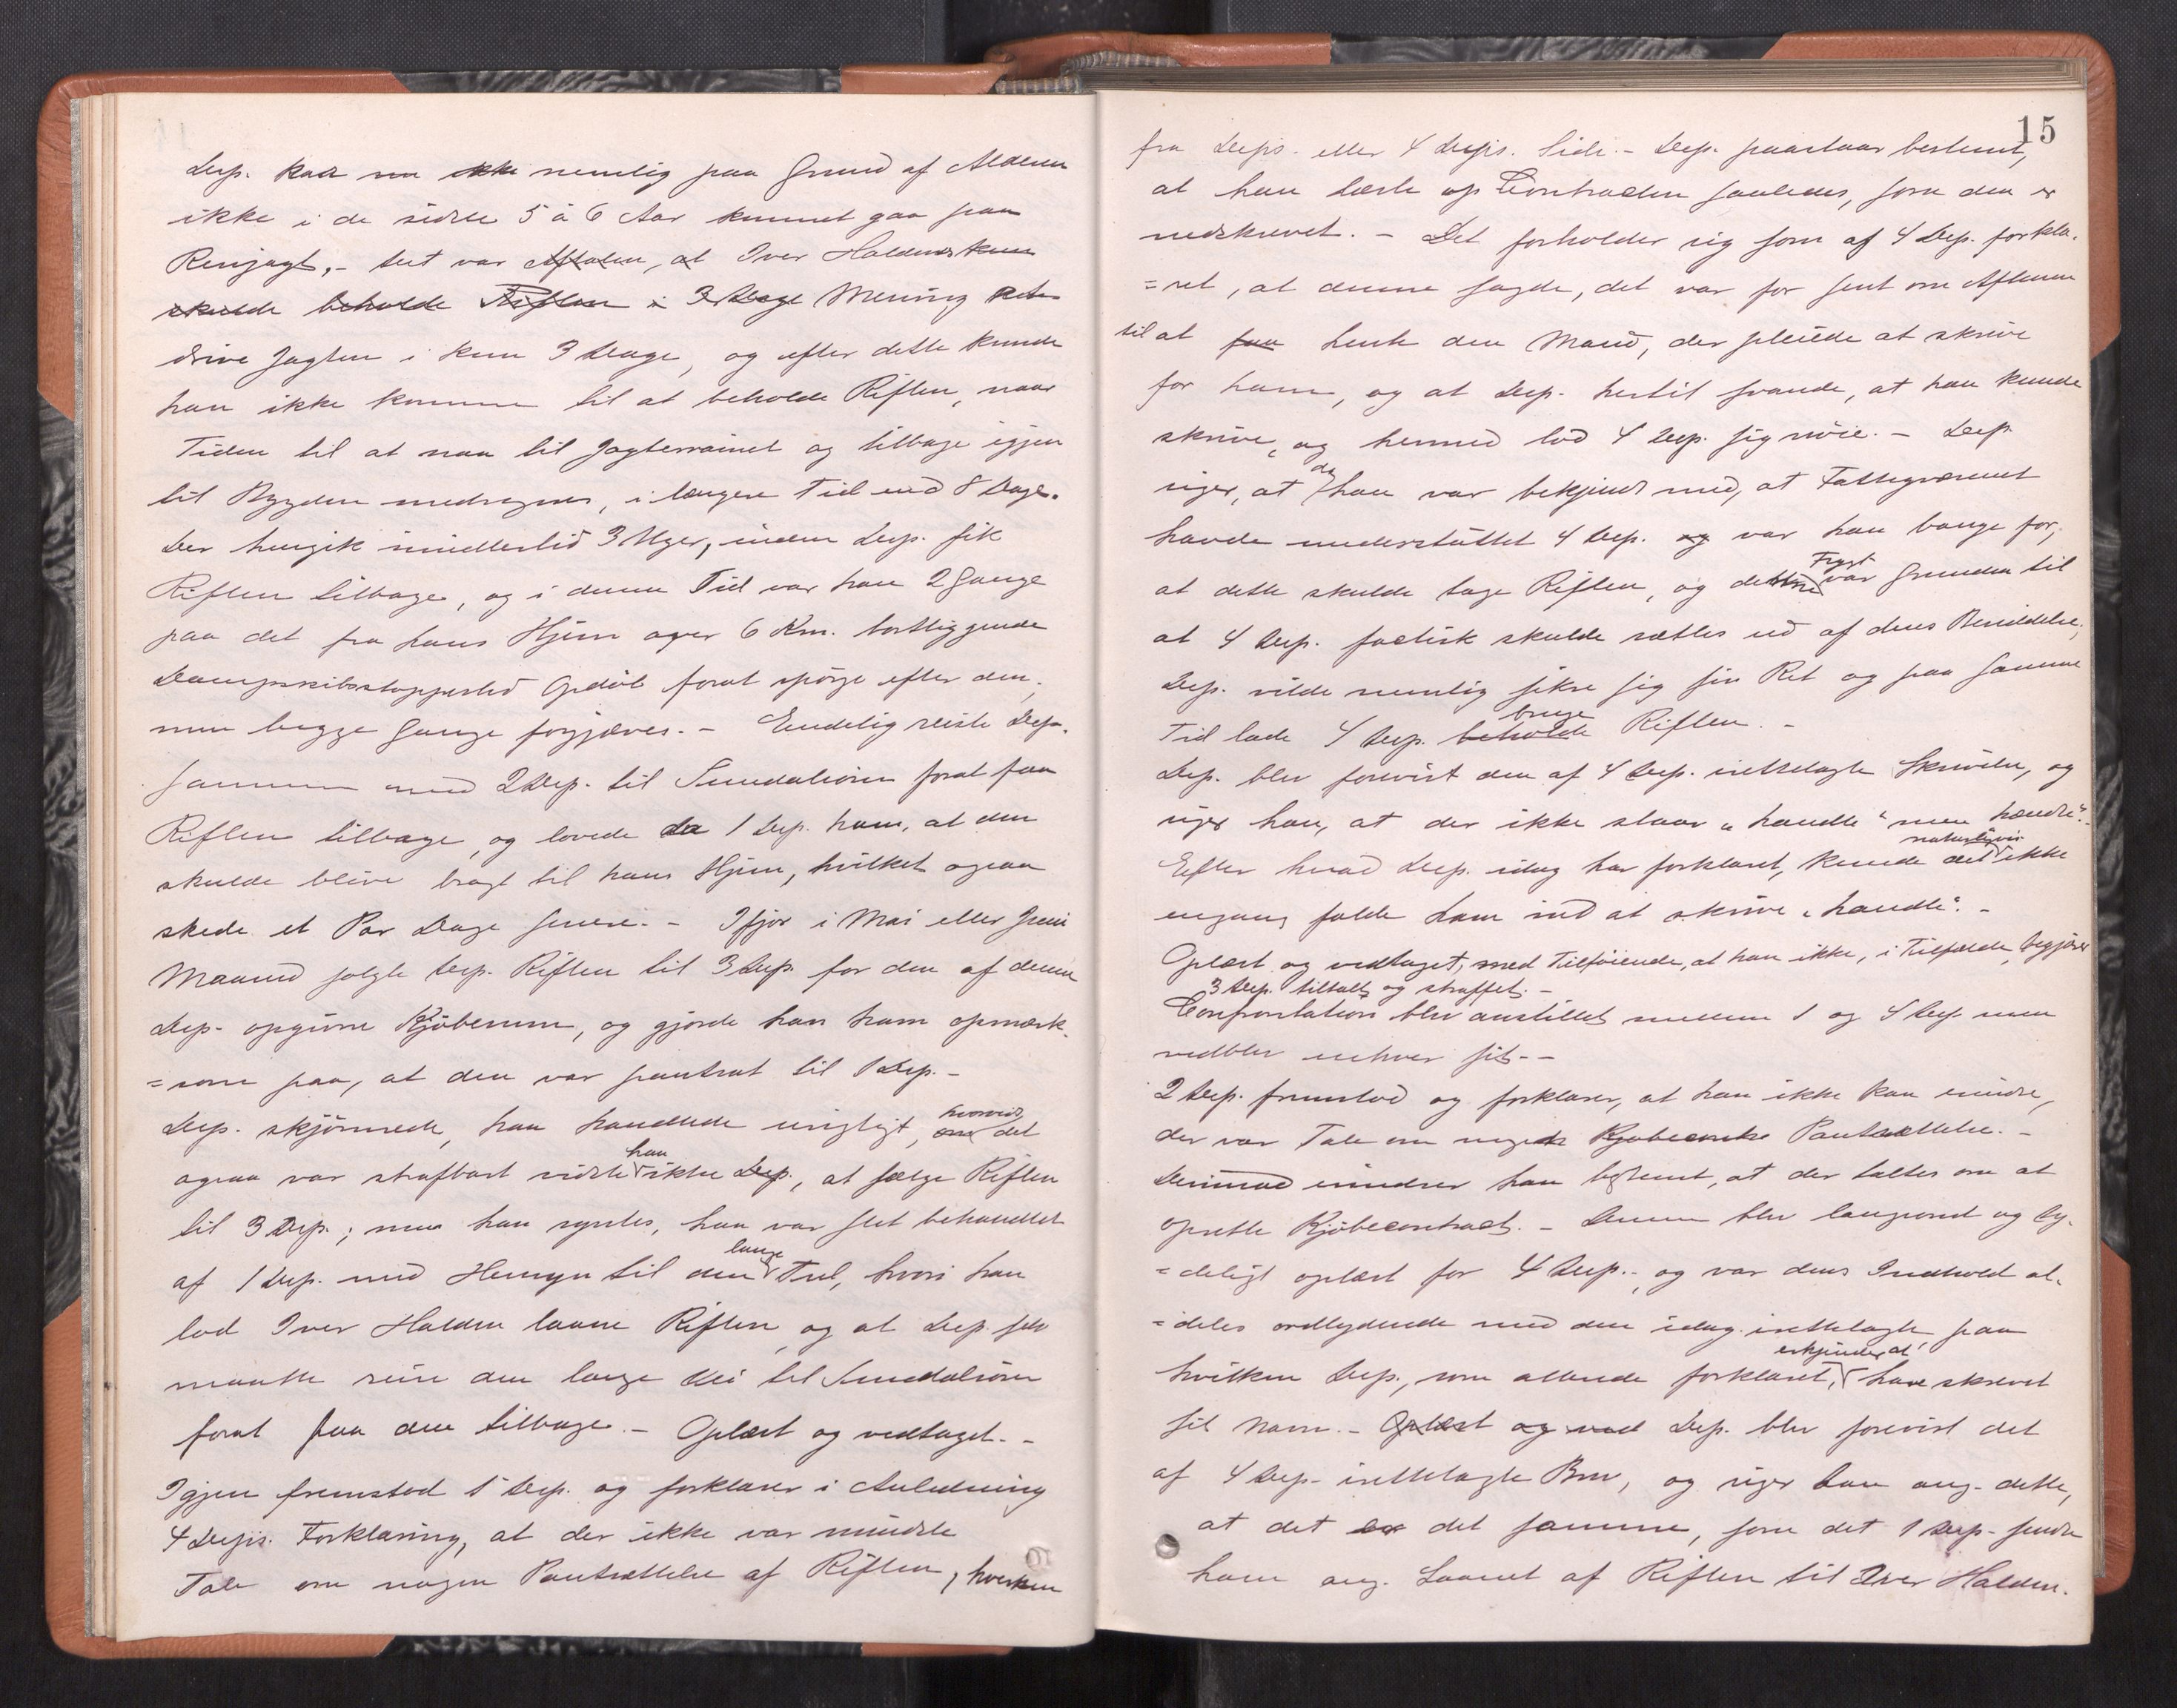 Dep. har nemlig paa Grund af Alderen
ikke i de sidste 5 à 6 Aar kunnet gaa paa
Renjagt, - det var Aftalen, at Iver Haldens
skulde beholde Riflen i 3 Dage Mening
drive Jagten i kun 3 Dage, og efter dette kunde
han ikke komme til at beholde Riflen, naar
Tiden til at naa til Jagterrainet og tilbage igjen
til Bygden medregnes, i længere Tid end 8 Dage.
Der hengik imidlertid 3 Uger, inden Dep. fik
Riflen tilbage, og i denne Tid var han 2 Gange
paa det fra hans Hjem over 6 Km. bortliggende
Dampskibsstoppested Opdöl forat spörge efter den,
men begge Gange forgjæves. - Endelig reiste Dep.
sammen med 2 Dep. til Sundalsören forat faa
Riflen tilbage, og lovede da 1 Dep. ham, at den
skulde blive bragt til hans Hjem, hvilket ogsaa
skede et Par Dage senere. - Ifjor i Mai eller Juni
Maaned solgte Dep. Riflen til 3 Dep. for den af denne
Dep. opgivne Kjöbesum, og gjorde han ham opmærk-
=som paa, at den var pantsat til 1 Dep. -
Dep. skjönnede, han handlede urigtigt, om hvorvidt det
ogsaa var strafbart vidste han ikke Dep., at sælge Riflen
til 3 Dep.; men han syntes, han var slet behandlet
af 1 Dep. med Hensyn til den lange Tid, hvori han
lod Iver Halden laane Riflen, og at Dep. selv
maatte reise den lange Vei til Sundalsören
forat faa den tilbage. - Oplæst og vedtaget. -
Igjen fremstod 1 Dep. og forklarer i Anledning
4 Deps. Forklaring, at der ikke var mindste
Tale om nogen Pantsættelse af Riflen, hverken
15
fra Deps. eller 4 Deps. Side. - Dep. paastaar bestemt,
at han læste op Contracten saaledes, som den er
nedskrevet. - Det forholder sig som af 4 Dep. forkla-
=ret, at denne sagde, det var for sent om Aftenen
til at faa hente den Mand, der pleiede at skrive
for ham, og at Dep. hertil svarede, at han kunde
skrive, og hermed lod 4 Dep. sig nöie. - Dep.
siger, at da han var bekjendt med, at Fattigvæsenet
havde understöttet 4 Dep. og var han bange for,
at dette skulde tage Riflen, og denne Frygt var Grunden til
at 4 Dep. factisk skulde sættes ud af dens Besiddelse,
Dep. vilde nemlig sikre sig sin Ret og paa samme
Tid lade 4 Dep. beholde bruge Riflen. -
Dep. blev forevist den af 4 Dep. irettelagte Skrivelse, og
siger han, at der ikke staar "handle" men "hændte". -
Efter hvad Dep. idag har forklaret, kunde det naturligvis ikke
engang falde ham ind at skrive "handle". -
Oplæst og vedtaget, med Tilföiende, at han ikke, i Tilfælde, begjærer
3 Dep. tiltalt og straffet. -
Confrontation blev anstillet mellem 1 og 4 Dep. men
vedblev enhver sit. -
2 Dep. fremstod og forklarer, at han ikke kan mindes,
der var Tale om nogen Kjöbecontra Pantsættelse. -
Derimod mindes han bestemt, at der taltes om at
oprette Kjöbecontract. - Denne blev langsomt og ty-
=deligt oplæst for 4 Dep. - og var dens Indhold al-
=deles ordlydende med den idag irettelagte, paa
hvilken Dep., som allerede forklaret, erkjender at have skrevet
sit Navn. - Oplæst og ved Dep. blev forevist det
af 4 Dep. irettelagte Brev, og siger han ang. dette,
at det er det samme, som det 1 Dep. sendte
ham ang. Laanet af Riflen til Iver Halden.